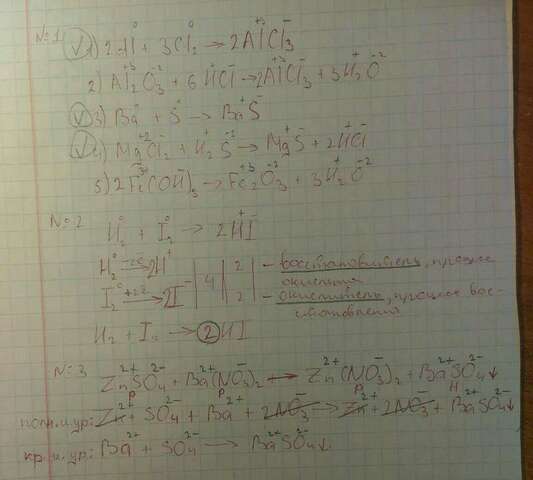 №1 ✓ 1) 2Al⁰ + 3Cl₂⁰ → 2Al⁺³Cl₃⁻
2) Al₂⁺³O₃⁻² + 6H⁺Cl⁻ → 2Al⁺³Cl₃⁻ + 3H₂⁺O⁻²
✓ 3) Ba⁰ + S⁰ → Ba⁺S⁻
✓ 4) Mg⁺²Cl₂⁻ + H₂⁺S⁻² → Mg⁺S⁻ + 2H⁺Cl⁻
5) 2Fe⁺³(OH)₃⁻ → Fe₂⁺³O₃⁻² + 3H₂⁺O⁻²
№2 H₂⁰ + I₂⁰ → 2H⁺I⁻
H₂⁰ –2е→ 2H⁺ | 4 | 2 | – восстановитель, процесс окисления
I₂⁰ +2е→ 2I⁻ | 2 | – окислитель, процесс восстановления
H₂ + I₂ → 2HI
№3 Zn²⁺SO₄²⁻ + Ba²⁺(NO₃⁻)₂ → Zn²⁺(NO₃⁻)₂ + Ba²⁺SO₄²⁻↓
р р р н
полн.и.ур: Zn²⁺ + SO₄²⁻ + Ba²⁺ + 2NO₃⁻ → Zn²⁺ + 2NO₃⁻ + Ba²⁺SO₄²⁻↓
кр.и.ур: Ba²⁺ + SO₄²⁻ → Ba²⁺SO₄²⁻↓